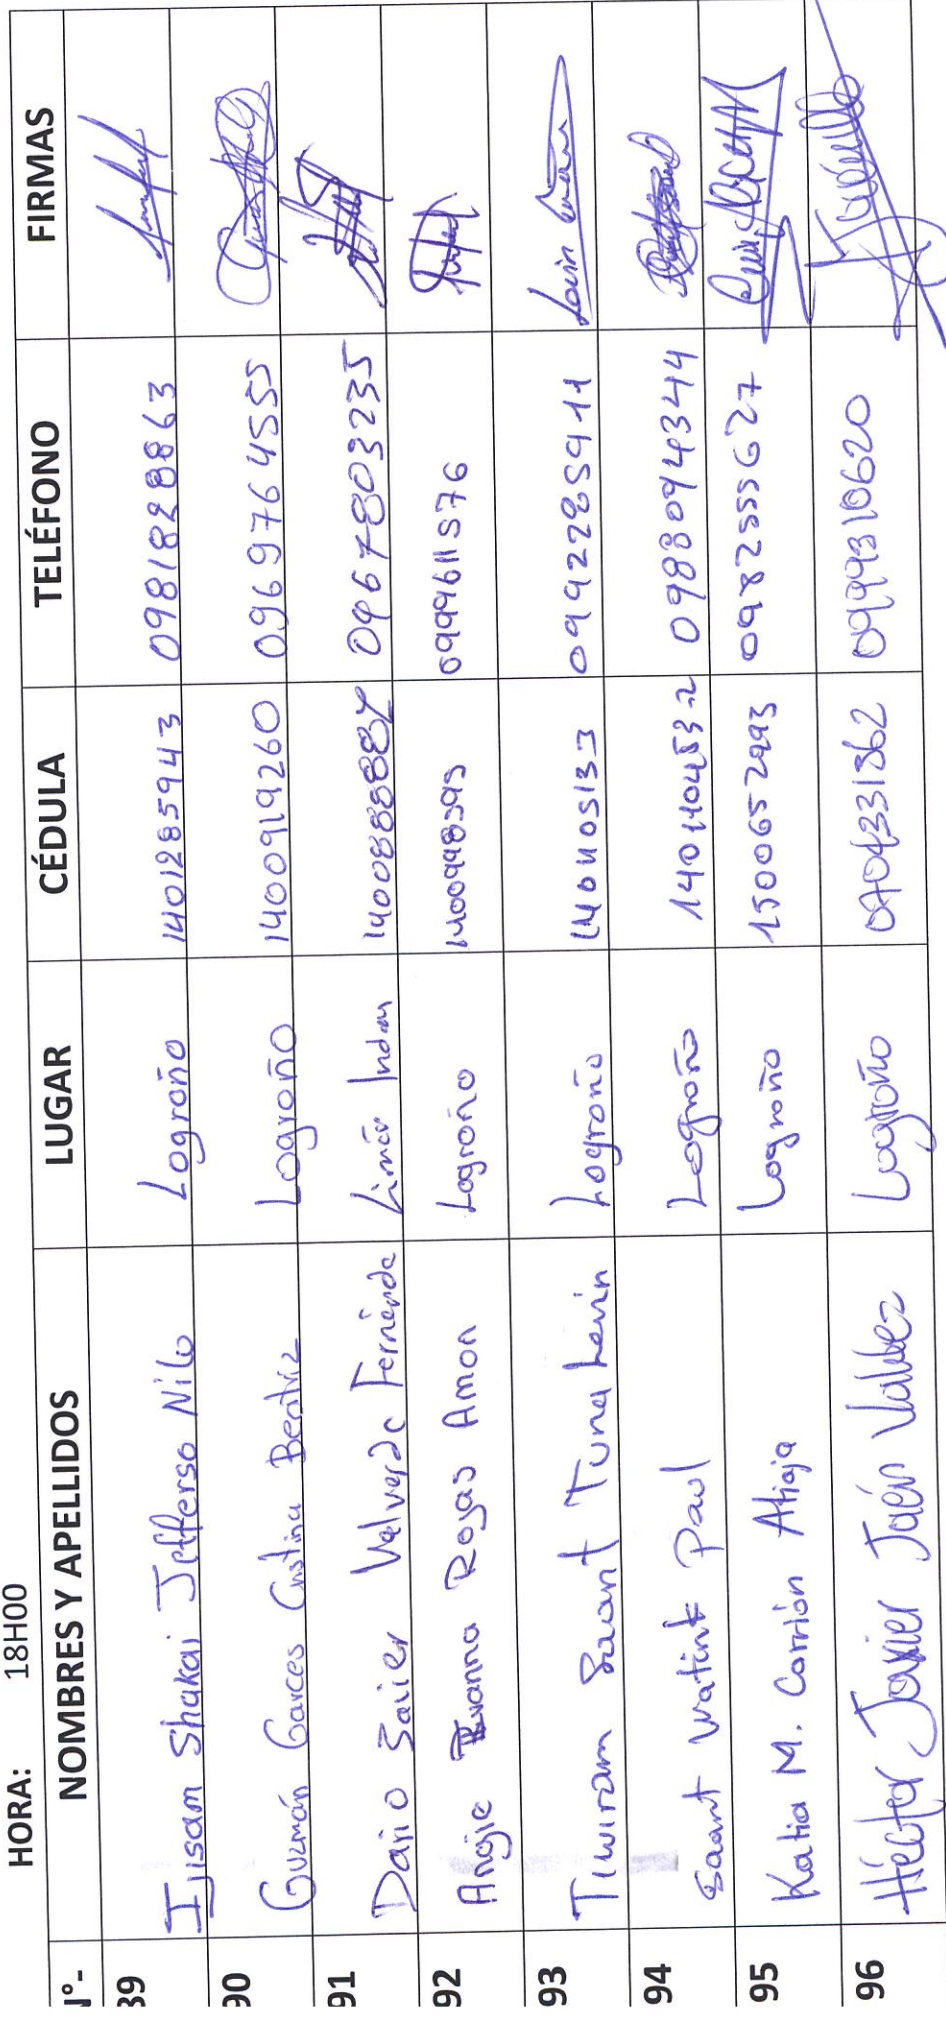 HORA: 18H00
N°- NOMBRES Y APELLIDOS LUGAR CÉDULA TELÉFONO FIRMAS
89 Ijisam Shakai Jefferso Nilo Logroño 1401285943 0981828863
90 Guzmán Garces Cristina Beatriz Logroño 1400919260 0969764555
91 Dario Xavier Valverde Fernánde Limón Indan 140088888 0967803235
92 Angie Rojas Amon Logroño 1400998595 0999611576
93 Tiwiram Saant Tuna Lenin Logroño 0992285911
94 Saant Watink Paul Logroño 0988094344
95 Katia M. Carrión Atiaja Logroño 1500652993 0982555627
96 Héctor Javier Jaén Valdez Logroño 0704331362 0999310620